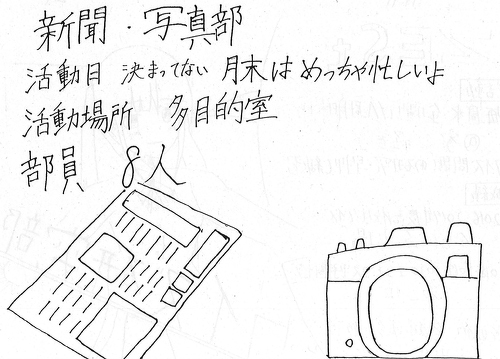 新聞・写真部
活動日 決まってない 月末はめっちゃ忙しいよ
活動場所 多目的室
部員 8人